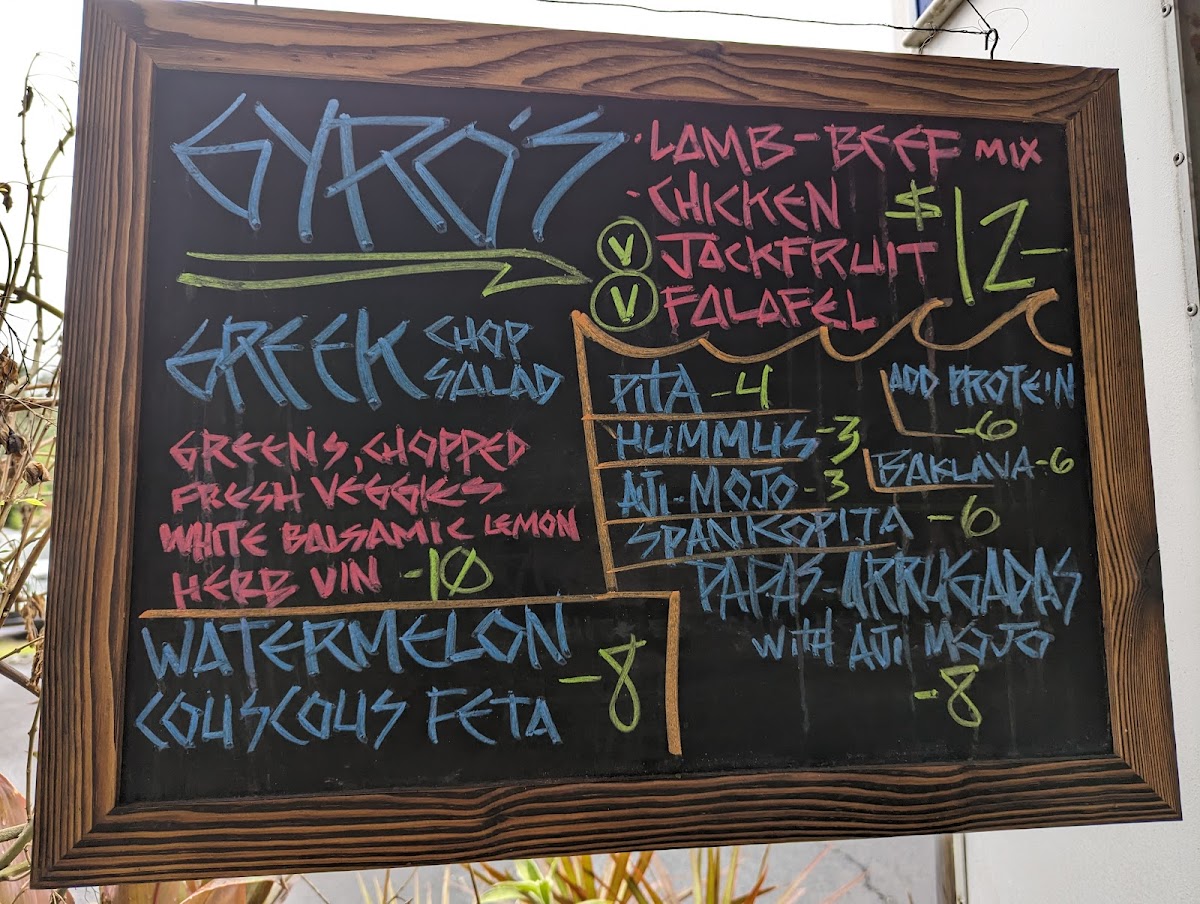 GYRO'S
· LAMB-BEEF MIX
· CHICKEN
V JACKFRUIT
V FALAFEL
$12-
GREEK CHOP SALAD
GREENS, CHOPPED
FRESH VEGGIES
WHITE BALSAMIC LEMON
HERB VIN -10
WATERMELON
COUSCOUS FETA -8
PITA -4
HUMMUS -3
AJI-MOJO -3
SPANKOPITA -6
ADD PROTEIN
-6
BAKLAVA -6
PAPAS-ARRUGADAS
WITH AJI MOJO
-8